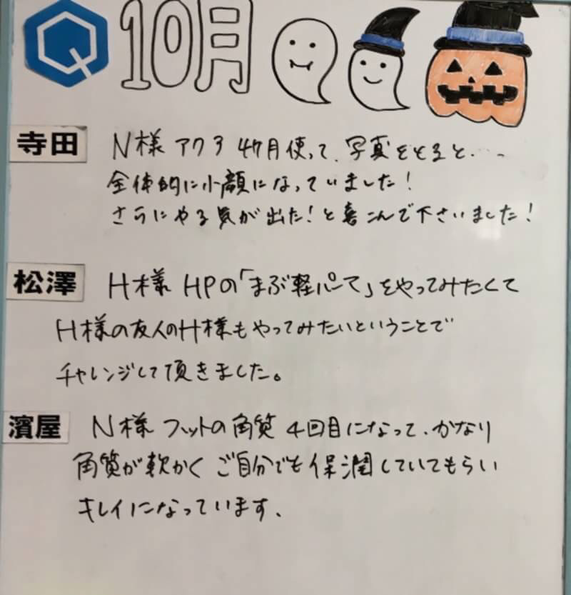 10月
寺田 N様 アクア 4ヶ月使って、写真をとると…
全体的に小顔になっていました!
さらにやる気が出た!と喜こんで下さいました!
松澤 H様 HPの「まぶ軽パーマ」をやってみたくて
H様の友人のH様もやってみたいということで
チャレンジして頂きました。
濱屋 N様 フットの角質 4回目になって、かなり
角質が軟かく ご自分でも保潤していてもらい
キレイになっています。